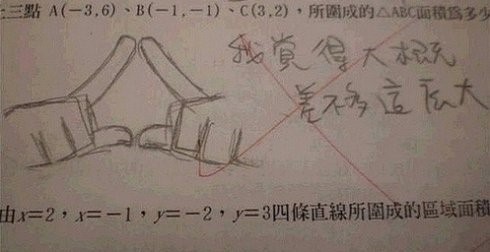 三點 A(-3,6)、B(-1,-1)、C(3,2),所圍成的△ABC面積為多少
我覺得大概
差不多這麼大
由x=2,x=-1,y=-2,y=3四條直線所圍成的區域面積